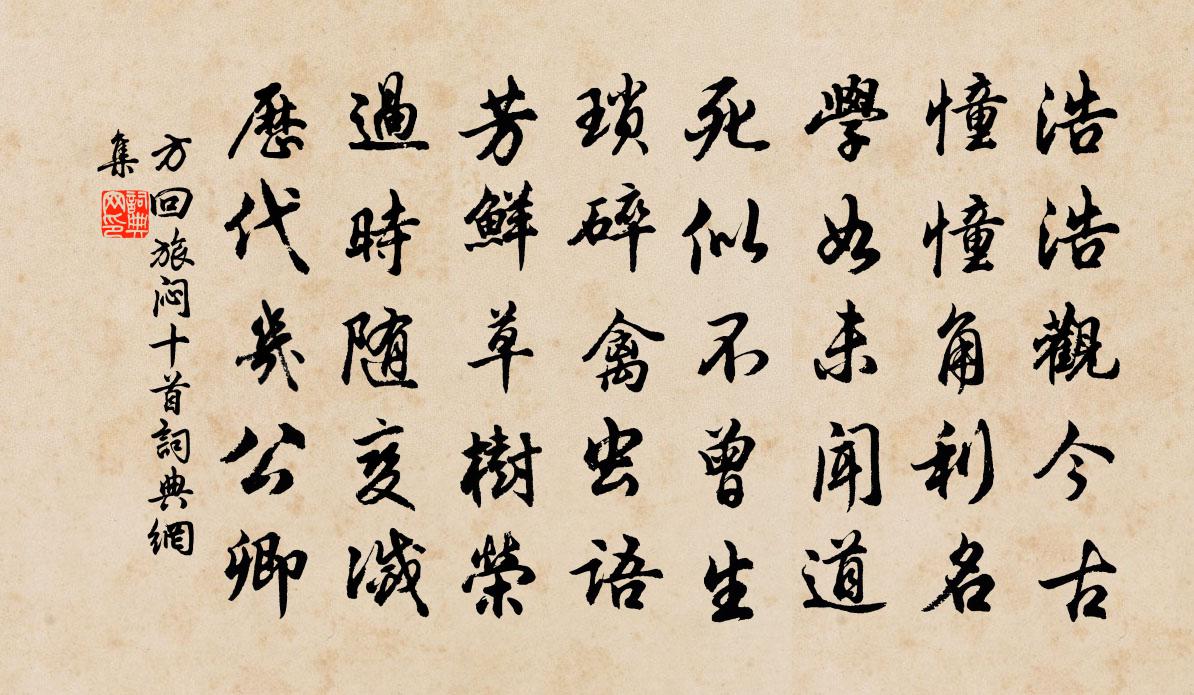 浩浩觀今古
憧憧角利名
學如未聞道
死似不曾生
瑣碎禽虫語
芳鮮草樹榮
過時随变滅
歷代幾公卿
方回旅闷十首詞典網
集
詞典网印